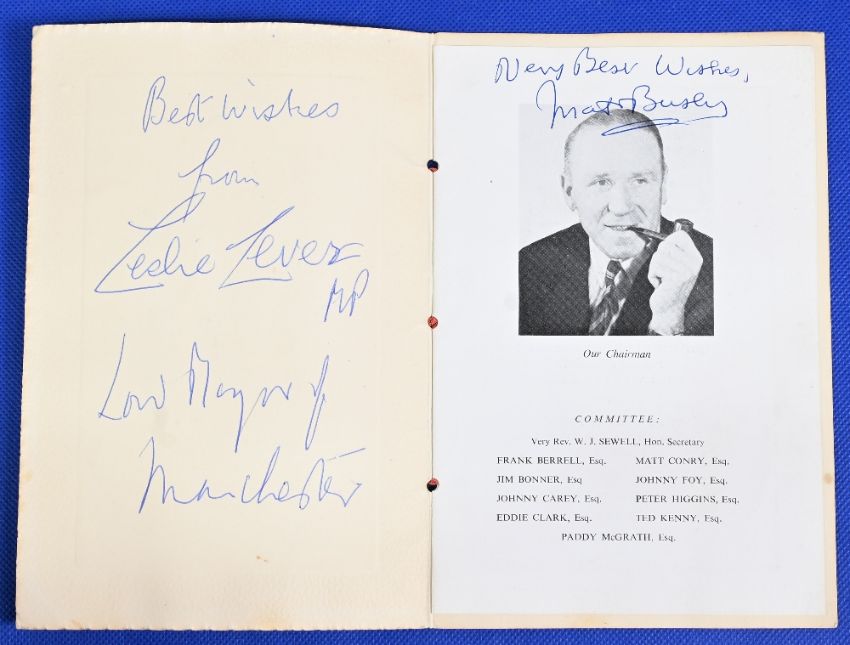 Best Wishes
from
Leslie Lever
MP
Lord Mayor of
Manchester
Very Best Wishes,
Matt Busby
Our Chairman
COMMITTEE:
Very Rev. W. J. SEWELL, Hon. Secretary
FRANK BERRELL, Esq. MATT CONRY, Esq.
JIM BONNER, Esq JOHNNY FOY, Esq.
JOHNNY CAREY, Esq. PETER HIGGINS, Esq.
EDDIE CLARK, Esq. TED KENNY, Esq.
PADDY McGRATH, Esq.